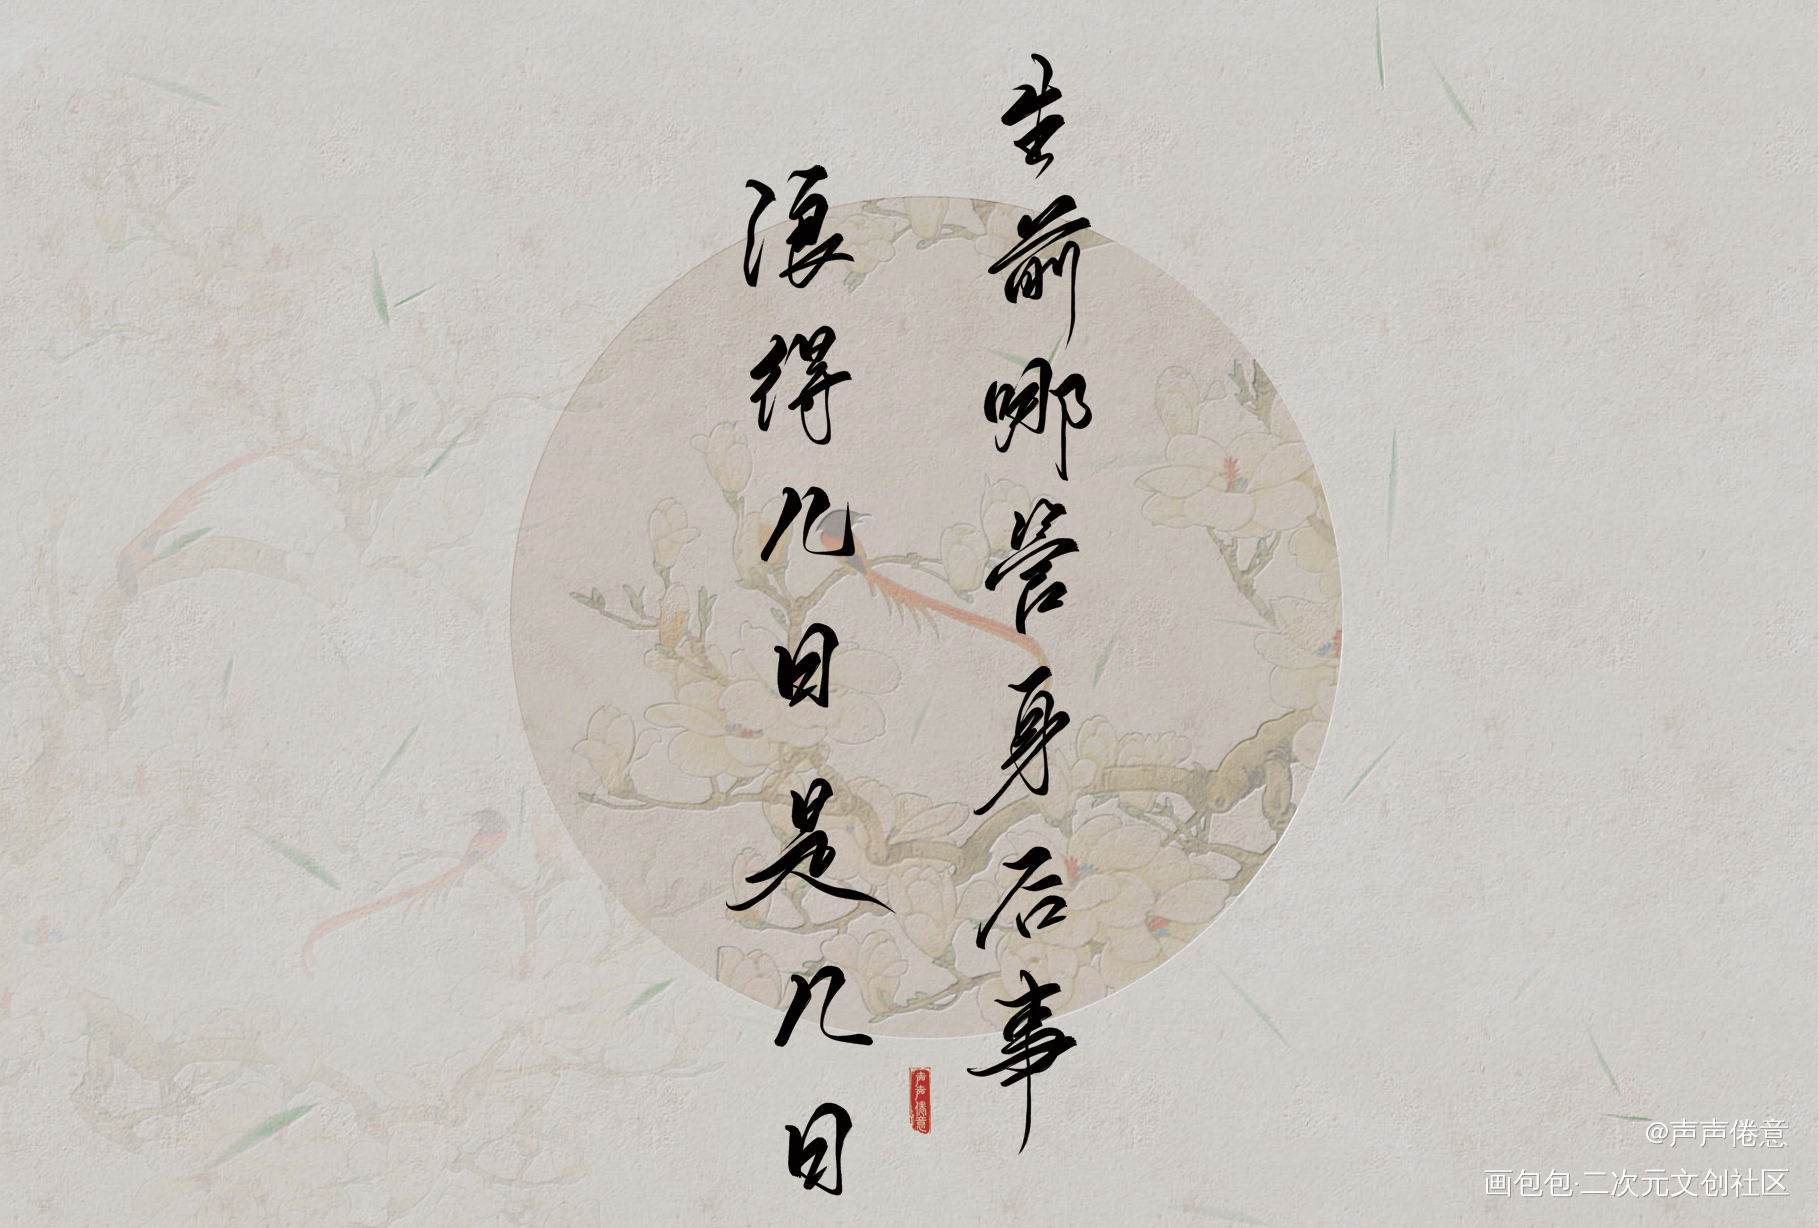 生前哪管身后事
浪得几日是几日
声声倦意
@声声倦意
画包包·二次元文创社区